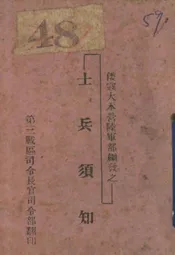 59.
48
倭寇大本營陸軍部編發之
士兵須知
第三戰區司令長官司令部翻印